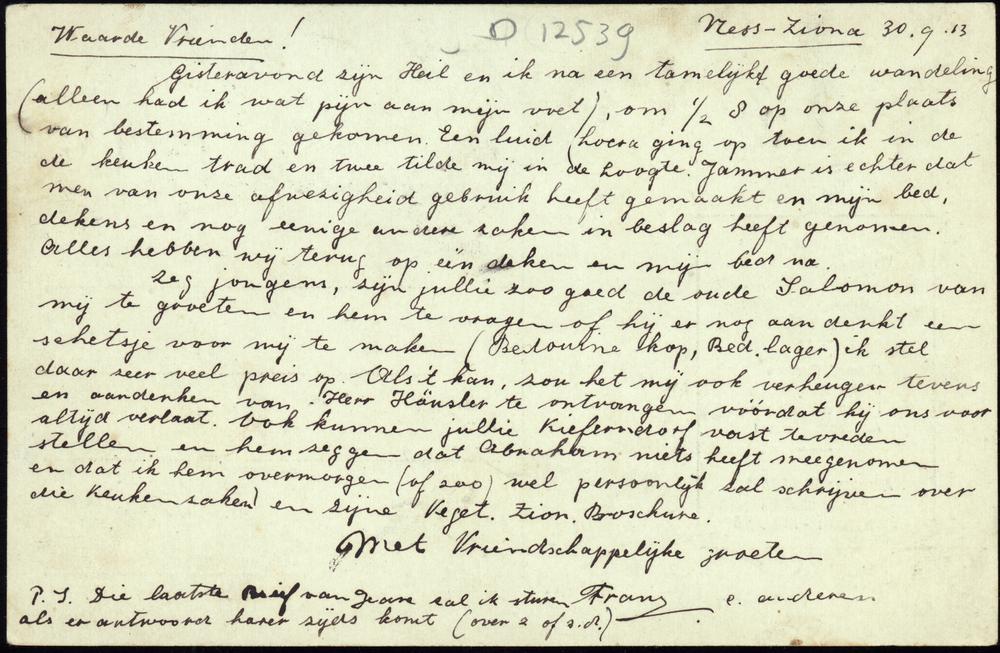 Waarde Vrienden! D 12539 Ness-Ziona 30.9.13
Gisteravond zijn Heil en ik na een tamelijk goede wandeling
(alleen had ik wat pijn aan mijn voet), om ½ 8 op onze plaats
van bestemming gekomen. Een luid hoera ging op toen ik in de
de keuken trad en twee tilde mij in de hoogte. Jammer is echter dat
men van onze afwezigheid gebruik heeft gemaakt en mijn bed,
dekens en nog eenige andere zaken in beslag heeft genomen.
Alles hebben wij terug op één deken en mijn bed na.
Zeg jongens, zijn jullie zoo goed de oude Salomon van
mij te groeten en hem te vragen of hij er nog aan denkt een
schetsje voor mij te maken (Bedouine kop, Bed. lager) ik stel
daar zeer veel preis op. Als 't kan, zou het mij ook verheugen tevens
en aandenken van Herr Häusler te ontvangen vóórdat hij ons voor
altijd verlaat. Ook kunnen jullie Kieferndorf vast tevreden
stellen en hem zeggen dat Abraham niets heeft meegenomen
en dat ik hem overmorgen (of zoo) wel persoonlijk zal schrijven over
die keuken zaken) en zijne Veget. Zion. Broschure.
Met Vriendschappelijke groeten
P.S. Die laatste Brief van Jeare zal ik sturen Franz e. anderen
als er antwoord harer zijds komt (over 2 of 3 d.)